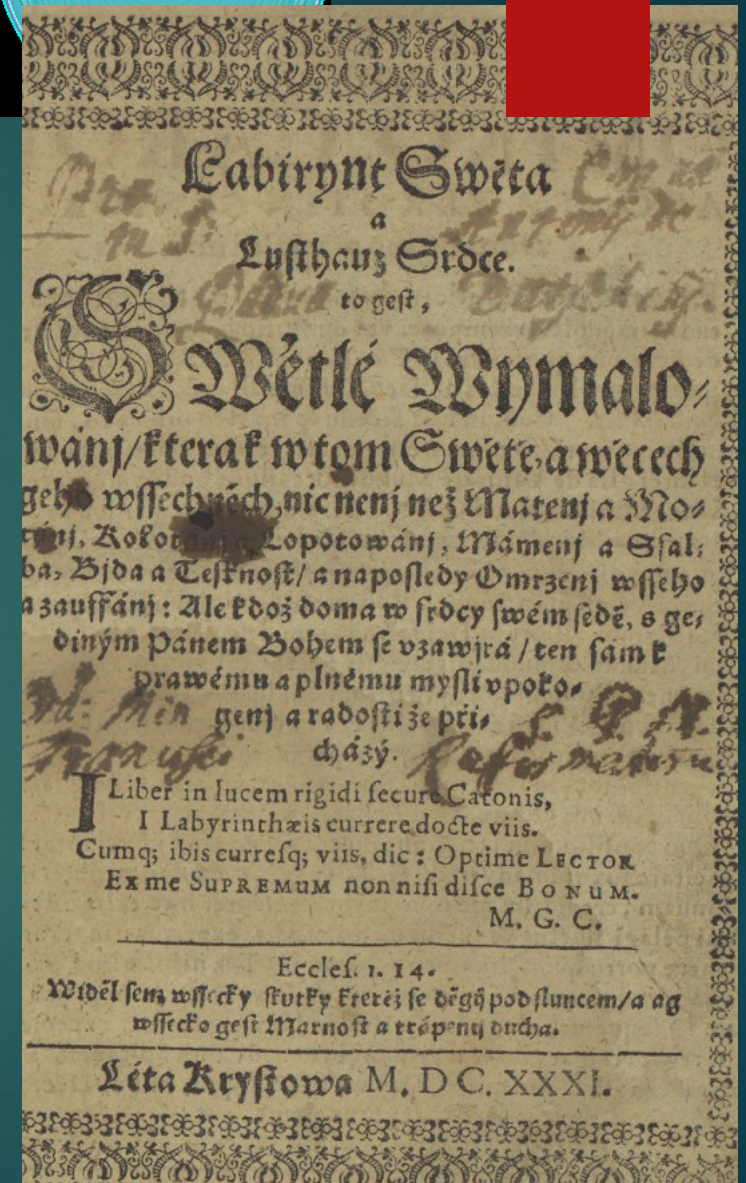 Labirynt Swěta
a
Lusthauz Srdce.
to gest,
SWětlé Wymalo-
wánj/kterak w tom Swětě, a wěcech
geho wssechněch, nic nenj než Matenj a Mo-
tánj, Kolotánj a Lopotowánj, Mámenj a Ssal-
ba, Bjda a Tesknost/ a naposledy Omrzenj wsseho
a zauffánj: Ale kdož doma w srdcy swém sedě, s ge-
diným Pánem Bohem se vzawjrá/ ten sám k
prawému a plnému mysli vpoko-
genj a radosti že při-
cházý.
I Liber in lucem rigidi secure Catonis,
I Labyrinthæis currere docte viis.
Cumq; ibis curresq; viis, dic: Optime LECTOR
Ex me SUPREMUM non nisi disce BONUM.
M. G. C.
Eccles. 1. 14.
Widěl sem wssecky skutky kteréž se děgij pod sluncem/a ag
wssecko gest Marnost a trápenij ducha.
Léta Krystowa M. DC. XXXI.